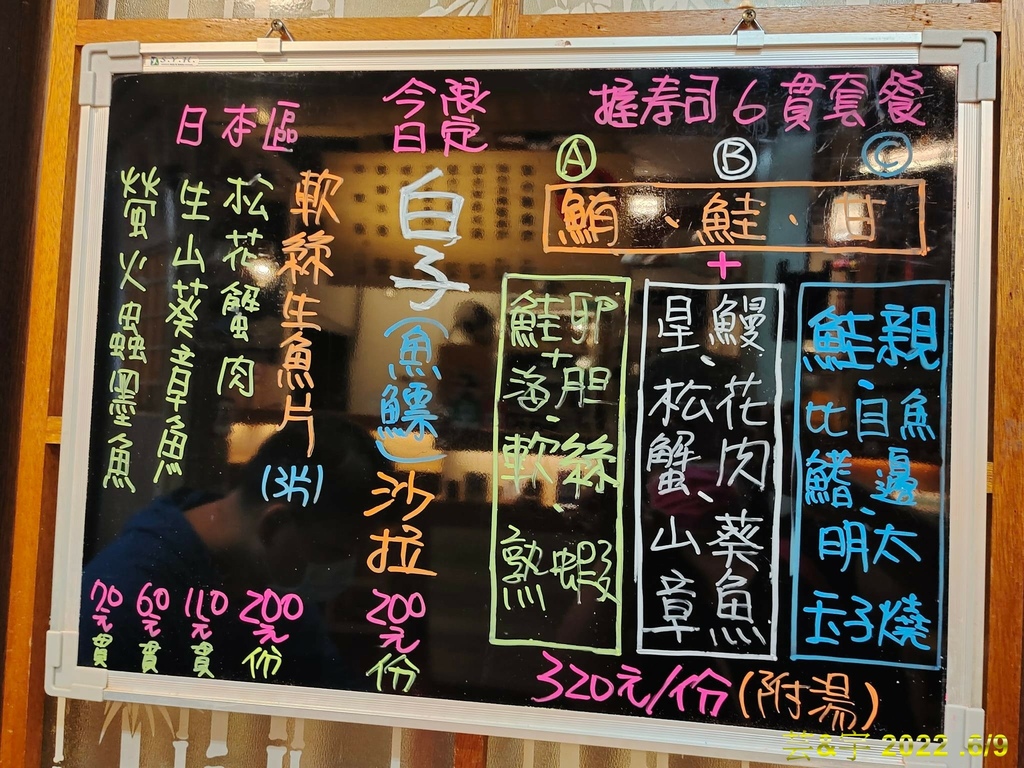 握寿司6貫套餐
Ⓐ Ⓑ Ⓒ
鮪、鮭、甘
+
鮭卵
+
海胆、
軟絲、
熟蝦
星鰻、
松花
蟹肉、
山葵
章魚
鮭親、
比目魚
鰭邊、
明太
玉子燒
320元/份(附湯)
今日限定
白子(魚鰾)沙拉
200元份
日本區
軟絲生魚片(3片)
200元份
松花蟹肉
110元貫
生山葵章魚
60元貫
螢火蟲墨魚
70元貫
芸&宇 2022 .6/9